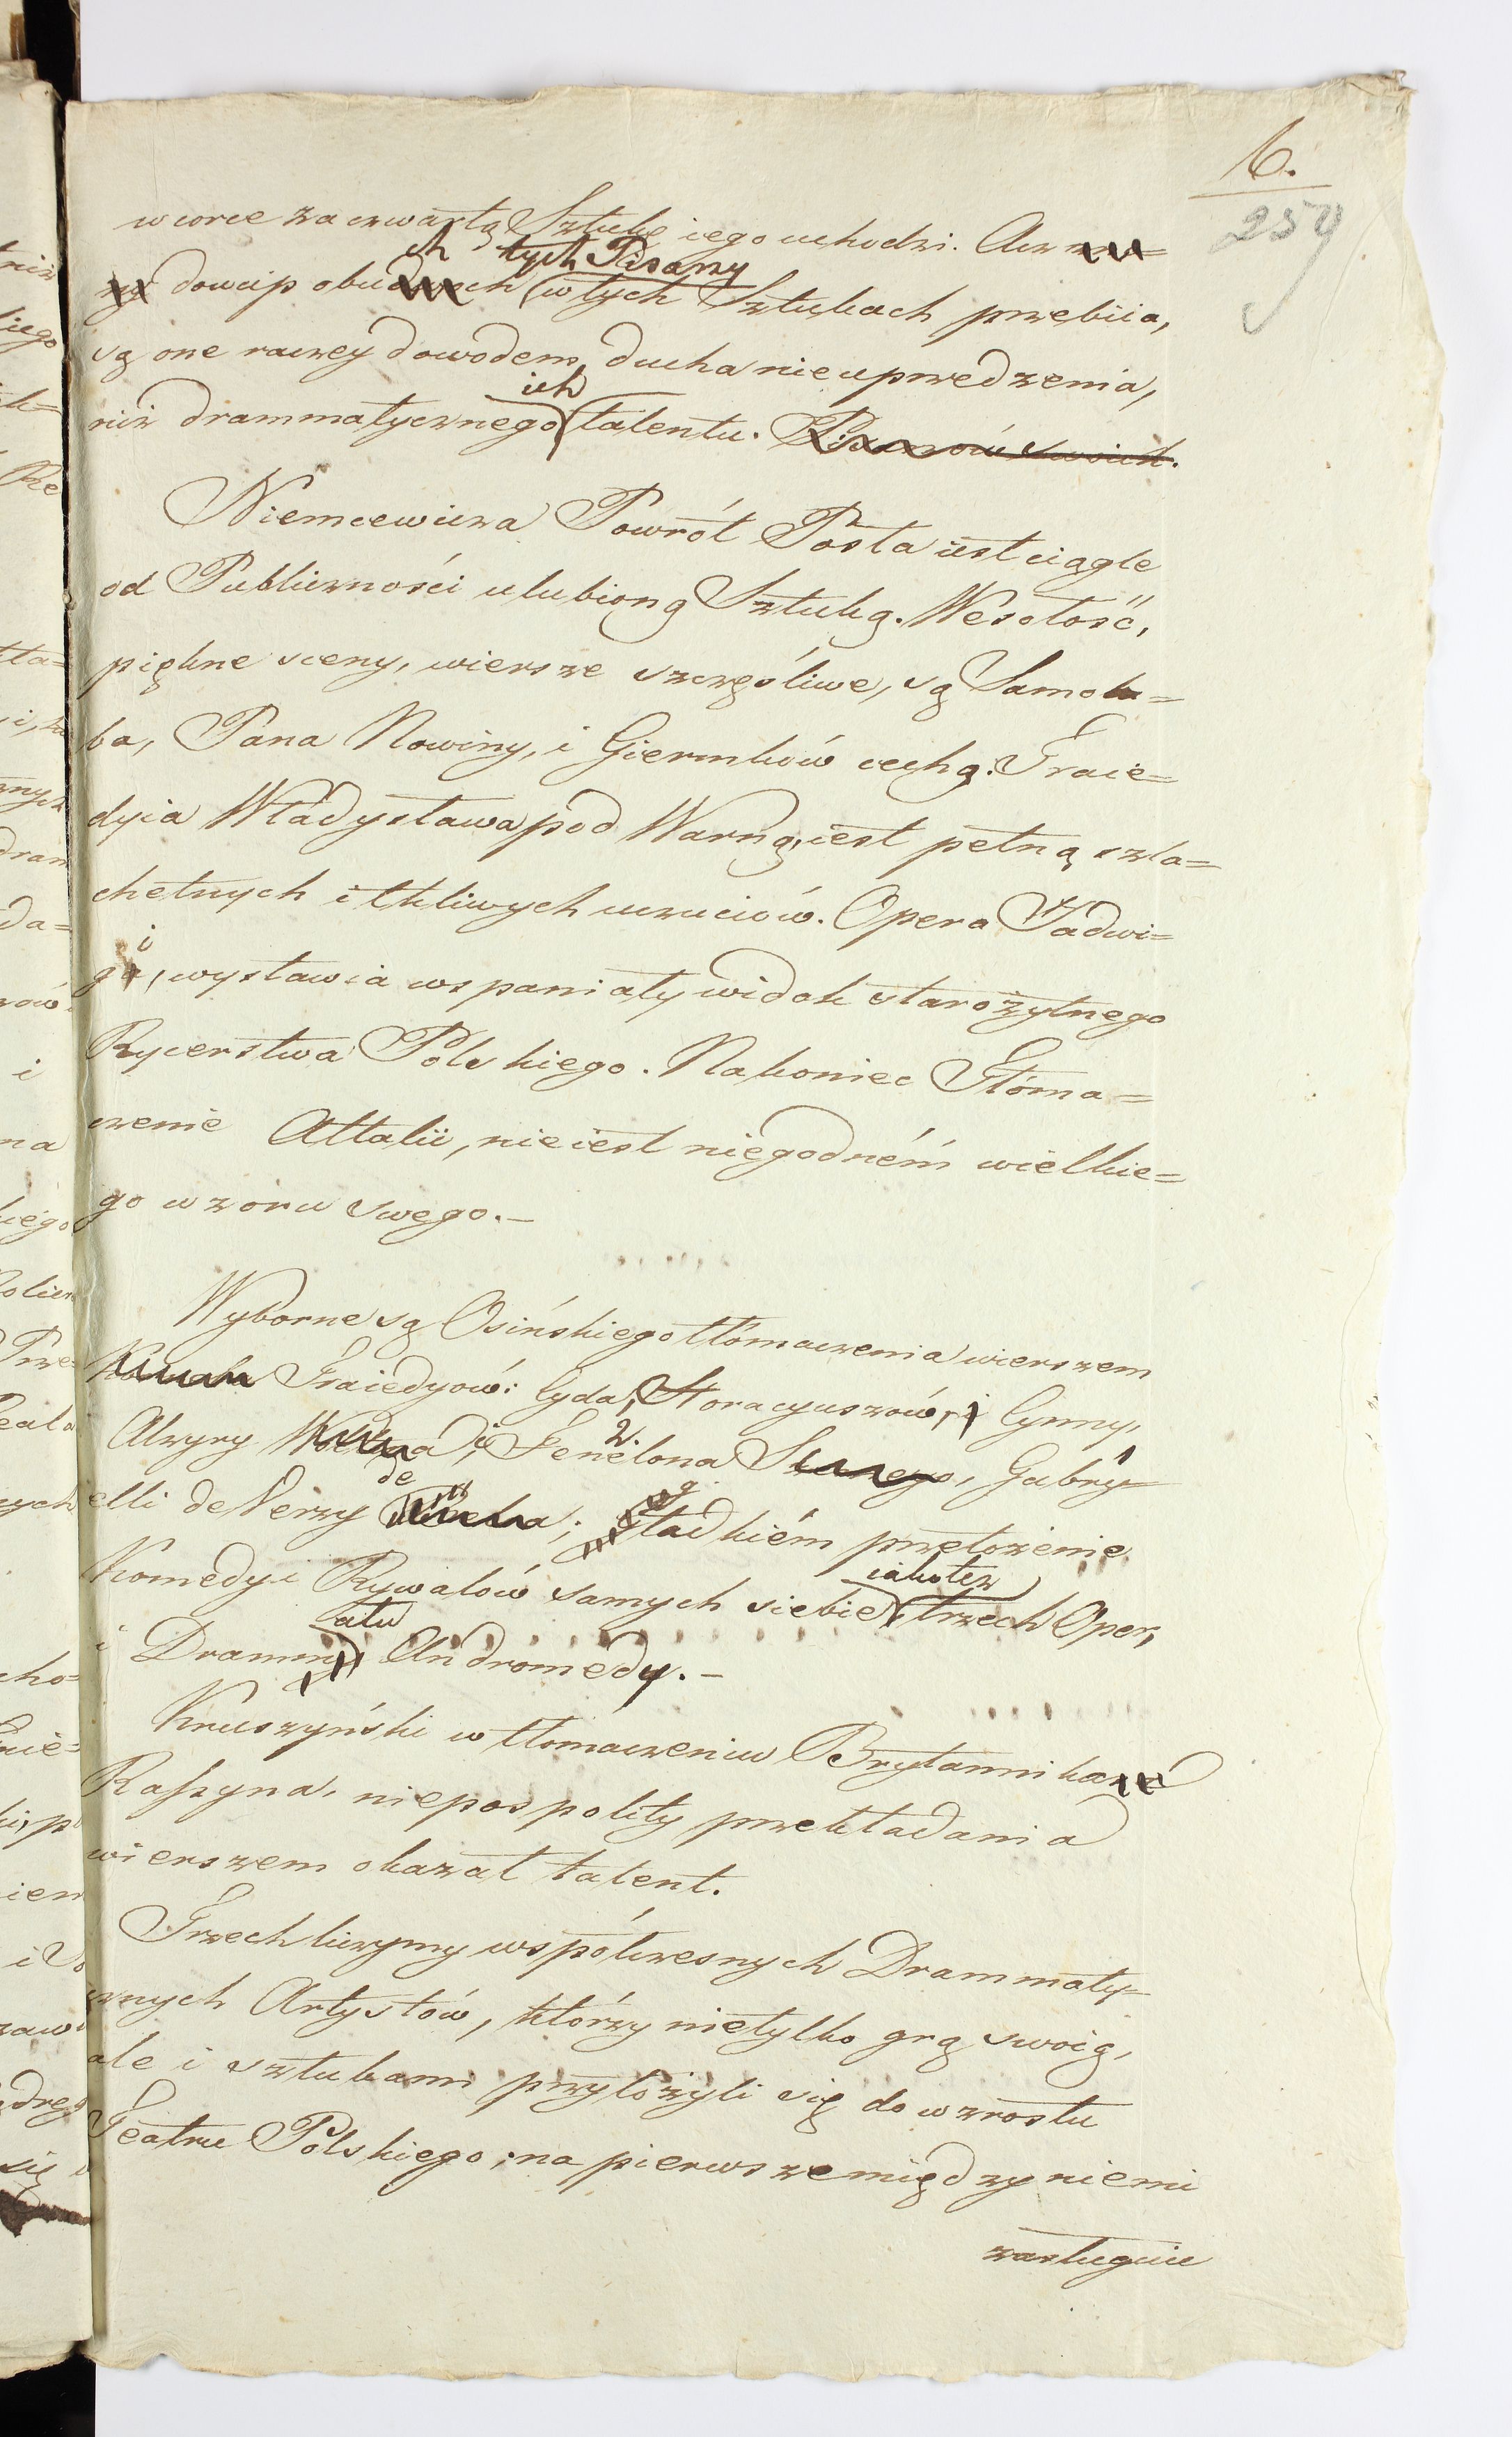 6.
259
w corce za czwartą Sztukę iego uchodzi. Acz
ch tych Pisarzy
dowcip obudwoch w tych Sztukach przebiia,
są one raczey dowodem ducha nieuprzedzenia,
ich
niż drammatycznego talentu. Pisarzów swoich.
Niemcewicza Powrót Posła iest ciągle
od Publiczności ulubioną Sztuką. Wesołość,
piękne sceny, wiersze szczęśliwe, są Samolu=
ba, Pana Nowiny, i Giermków cechą. Traie=
dyia Władysława pod Warną, iest pełną szla=
chetnych i tkliwych uczuciów. Opera Jadwi=
i
ga, wystawia wspaniały widok starożytnego
Rycerstwa Polskiego. Nakoniec Tłóma=
czenie Attalii, nie iest niegodném wielkie=
go wzoru swego.—
Wyborne są Osińskiego tłómaczenia wierszem
Traiedyów: Cyda, Horacyuszów, i Cynny,
Alzyry i Fenelona, Gabry=
de
elli de Verzy; gładkiém przełożenie
iakoteż
Komedyi Rywalów samych siebie trzech Oper,
atu
i Dramm Andromedy.—
Kruszyński w tłómaczeniu Brytannika
Rassyna, niepospolity przekładania
wierszem okazał talent.
Trzech liczymy współczesnych Drammaty=
cznych Artystów, którzy nietylko grą swoią,
ale i sztukami przyłożyli się do wzrostu
Teatru Polskiego; na pierwsze między niemi
zasługuie